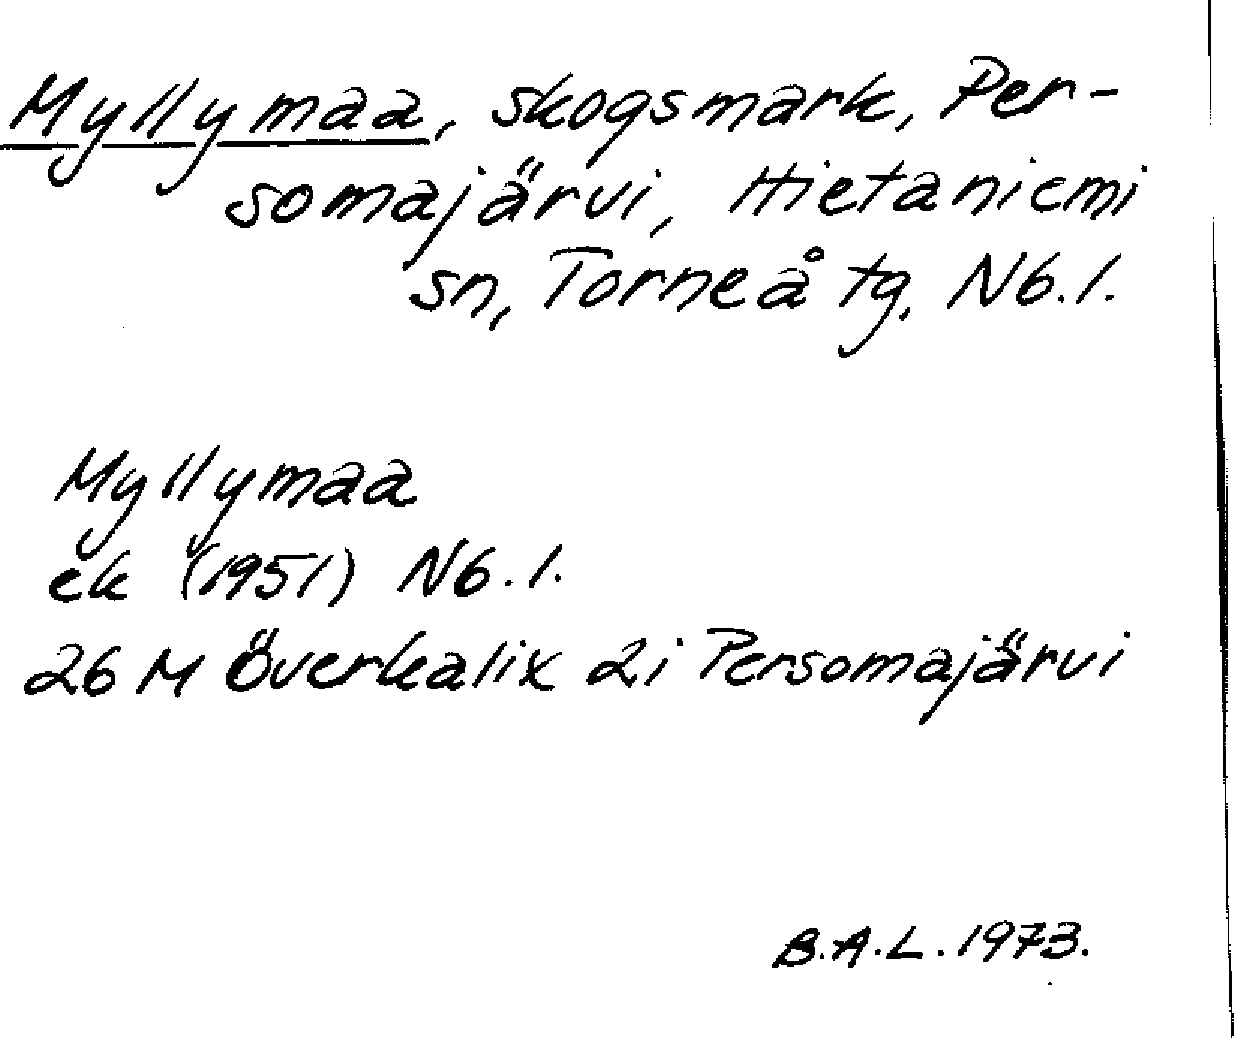 Myllymaa, skogsmark, Per-
somajärvi, Hietaniemi
sn, Torneå tg, Nb. l.
Myllymaa
ek (1951) Nb. l.
26 M Överkalix 2i Persomajärvi
B.A.L. 1973.